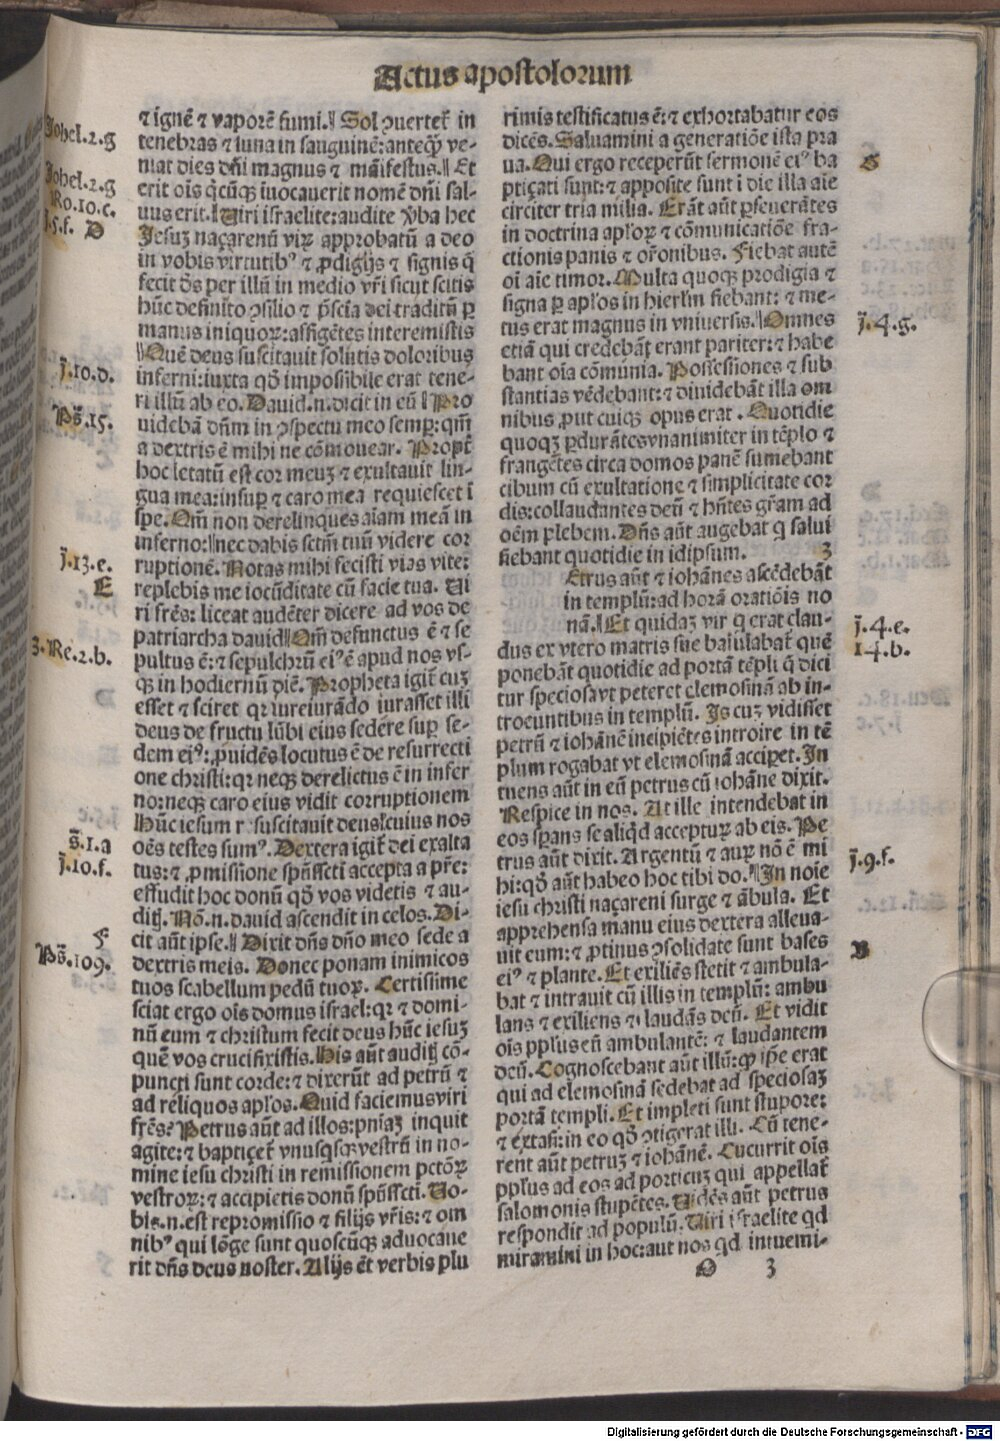 Actus apostolorum
Johel.2.g
Johel.2.g
Ro.10.c.
j.5.f. D
j.10.d.
Ps̄.15.
j.13.e.
E
3.Re.2.b.
s̄.1.a
j.10.f.
F
Ps̄.109.
⁊ ignē ⁊ vaporē fumi.‖ Sol ꝯuertet᷑ in
tenebras ⁊ luna in sanguinē:anteq̄ꝫ ve-
niat dies dn̄i magnus ⁊ manifestus.‖ Et
erit oīs q̄cūqꝫ inuocauerit nomē dn̄i sal-
uus erit.‖ Uiri israelite:audite v̄ba hec
Jesuꝫ naçarenū virꝫ approbatū a deo
in vobis virtutibꝰ ⁊ ꝓdigijs ⁊ signis q̄
fecit de͛s per illū in medio vr̄i sicut scitis
hūc definito ꝯsilio ⁊ p̄scia dei traditū ꝑ
manus iniquoꝝ:affigētes interemistis
‖Quē deus suscitauit solutis doloribus
inferni:iuxta qd̄ impossibile erat tene-
ri illū ab eo. Dauid.n.dicit in eū ‖ Pro
uidebā dn̄m in ꝯspectu meo semꝑ:qm̄
a dextris ē mihi ne cōmouear. Propt᷑
hoc letatū est cor meuꝫ ⁊ exultauit lin-
gua mea:insuꝑ ⁊ caro mea requiescet ī
spe. Qm̄ non derelinques aīam meā in
inferno:‖nec dabis sctm̄ tuū videre cor
ruptionē. Notas mihi fecisti vias vite:
replebis me iocūditate cū facie tua. Ui
ri fr̄es: liceat audēter dicere ad vos de
patriarcha dauid‖ Qm̄ defunctus ē ⁊ se
pultus ē:⁊ sepulchrū eiꝰ ē apud nos vs-
qꝫ in hodiernū diē. Propheta igit᷑ cuꝫ
esset ⁊ sciret qꝛ iureiurādo iurasset illi
deus de fructu lūbi eius sedere suꝑ se-
dem eiꝰ: ꝓuidēs locutus ē de resurrecti
one christi:qꝛ neqꝫ derelictus ē in infer
no:neqꝫ caro eius vidit corruptionem
Hūc iesum r suscitauit deus:‖cuius nos
oēs testes sumꝰ. Dextera igit᷑ dei exalta
tus:⁊ ꝓmissione spūssct̄i accepta a pr̄e:
effudit hoc donū qd̄ vos videtis ⁊ au-
ditꝭ. Nō.n. dauid ascendit in celos. Di-
cit aūt ipse.‖ Dixit dn̄s dn̄o meo sede a
dextris meis. Donec ponam inimicos
tuos scabellum pedū tuoꝝ. Certissime
sciat ergo oīs domus israel:qꝛ ⁊ domi-
nū eum ⁊ christum fecit deus hūc iesuꝫ
quē vos crucifixistis. His aūt auditꝭ cō-
puncti sunt corde:⁊ dixerūt ad petrū ⁊
ad reliquos apl̄os. Quid faciemus viri
fr̄es? Petrus aūt ad illos:pn̄iaꝫ inquit
agite:⁊ baptiçet᷑ vnusqsqꝫ vestrū in no-
mine iesu christi in remissionem pctōꝝ
vestroꝝ:⁊ accipietis donū spūssct̄i. Uo-
bis.n.est repromissio ⁊ filijs vr̄is:⁊ om
nibꝰ qui lōge sunt quoscūqꝫ aduocaue
rit dn̄s deus noster. Alijs ēt verbis plu
rimis testificatus ē:⁊ exhortabatur eos
dicēs. Saluamini a generatiōe ista pra
ua. Qui ergo receperūt sermonē eiꝰ ba
ptiçati sunt:⁊ apposite sunt ī die illa aīe
circiter tria milia. Erāt aūt ꝑseuerātes
in doctrina apl̄oꝝ ⁊ cōmunicatiōe fra-
ctionis panis ⁊ or̄onibus. Fiebat autē
oī aīe timor. Multa quoqꝫ prodigia ⁊
signa ꝑ apl̄os in hierl̄m fiebant: ⁊ me-
tus erat magnus in vniuersis.‖ Omnes
etiā qui credebāt erant pariter:⁊ habe
bant oīa cōmunia. Possessiones ⁊ sub
stantias vēdebant:⁊ diuidebāt illa om
nibus ꝓut cuiqꝫ opus erat . Quotidie
quoqꝫ ꝑdurātes vnanimiter in tēplo ⁊
frangētes circa domos panē sumebant
cibum cū exultatione ⁊ simplicitate cor
dis:collaudantes deū ⁊ hn̄tes gr̄am ad
oēm plebem. Dn̄s aūt augebat q salui
fiebant quotidie in idipsum. 3
Etrus aūt ⁊ iohānes ascēdebāt
in templū:ad horā oratiōis no
nā.‖ Et quidaꝫ vir q erat clau-
dus ex vtero matris sue baiulabat᷑ quē
ponebāt quotidie ad portā tēpli q̄ dici
tur speciosa vt peteret elemosinā ab in-
troeuntibus in templū. Is cuꝫ vidisset
petrū ⁊ iohānē incipiētes introire in tē
plum rogabat vt elemosinā accipet. In
tuens aūt in eū petrus cū iohāne dixit.
Respice in nos. At ille intendebat in
eos sperans se aliqd accepturꝫ ab eis. Pe
trus aūt dixit. Argentū ⁊ aurꝫ nō ē mi
hi:qd̄ aūt habeo hoc tibi do.‖ In noīe
iesu christi naçareni surge ⁊ ābula. Et
apprehensa manu eius dextera alleua-
uit eum:⁊ ꝓtinus ꝯsolidate sunt bases
eiꝰ ⁊ plante. Et exiliēs stetit ⁊ ambula-
bat ⁊ intrauit cū illis in templū: ambu
lans ⁊ exiliens ⁊ laudās deū. Et vidit
oīs pplus eū ambulantē: ⁊ laudantem
deū. Cognoscebant aūt illū:qꝙ ip̄e erat
qui ad elemosinā sedebat ad speciosaꝫ
portā templi. Et impleti sunt stupore:
⁊ extasi:in eo qd̄ ꝯtigerat illi. Cū tene-
rent aūt petruꝫ ⁊ iohānē. Cucurrit oīs
pplus ad eos ad porticuꝫ qui appellat᷑
salomonis stupētes. Uidēs aūt petrus
respondit ad populū. Uiri israelite qd
miramini in hoc:aut nos qd intuemi-
G
j.4.g.
j.4.e.
14.b.
j.9.f.
B
O 3
Digitalisierung gefördert durch die Deutsche Forschungsgemeinschaft - DFG